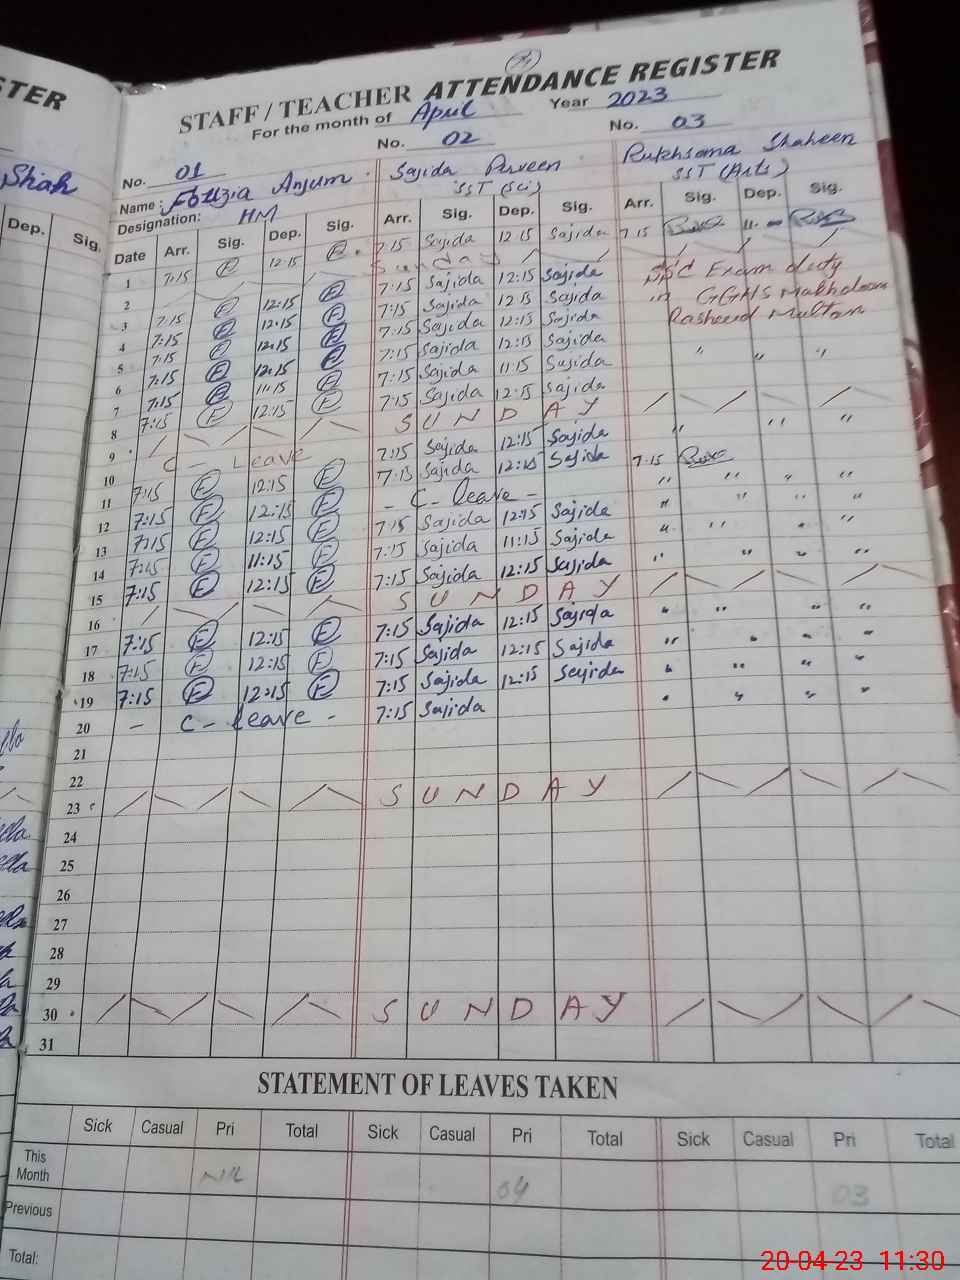 STER
STAFF / TEACHER ATTENDANCE REGISTER
For the month of April Year 2023
Shah
No. 01 No. 02 No. 03
Name: Fouzia Anjum Sajida Perveen Rukhsana Shaheen
Designation: HM SST (Sci) SST (Arts)
Dep. Sig.
Date Arr. Sig. Dep. Sig. Arr. Sig. Dep. Sig. Arr. Sig. Dep. Sig.
1 7:15 F 12:15 F 7:15 Sajida 12:15 Sajida 7:15
2 Sunday
3 7:15 F 12:15 F 7:15 Sajida 12:15 Sajida SSC Exam duty
4 7:15 F 12:15 F 7:15 Sajida 12:15 Sajida in GGHS Makhdoom
5 7:15 F 12:15 F 7:15 Sajida 12:15 Sajida Rasheed Multan
6 7:15 F 12:15 F 7:15 Sajida 12:15 Sajida
7 7:15 F 11:15 F 7:15 Sajida 11:15 Sajida " " "
8 7:15 F 12:15 F 7:15 Sajida 12:15 Sajida
9 SUNDAY
10 C - Leave 7:15 Sajida 12:15 Sajida " " "
11 7:15 F 12:15 F 7:15 Sajida 12:15 Sajida 7:15
12 7:15 F 12:15 F - C - leave - " " " "
13 7:15 F 12:15 F 7:15 Sajida 12:15 Sajida " " " "
14 7:15 F 11:15 F 7:15 Sajida 11:15 Sajida " " " "
15 7:15 F 12:15 F 7:15 Sajida 12:15 Sajida " " " "
16 SUNDAY
17 7:15 F 12:15 F 7:15 Sajida 12:15 Sajida " " " "
18 7:15 F 12:15 F 7:15 Sajida 12:15 Sajida " " " "
19 7:15 F 12:15 F 7:15 Sajida 12:15 Sajida " " " "
20 - C - Leave - 7:15 Sajida " " " "
21
22
23 SUNDAY
24
25
26
27
28
29
30 SUNDAY
31
STATEMENT OF LEAVES TAKEN
Sick Casual Pri Total Sick Casual Pri Total Sick Casual Pri Total
This Month NIL 04 03
Previous
Total:
20-04-23 11:30